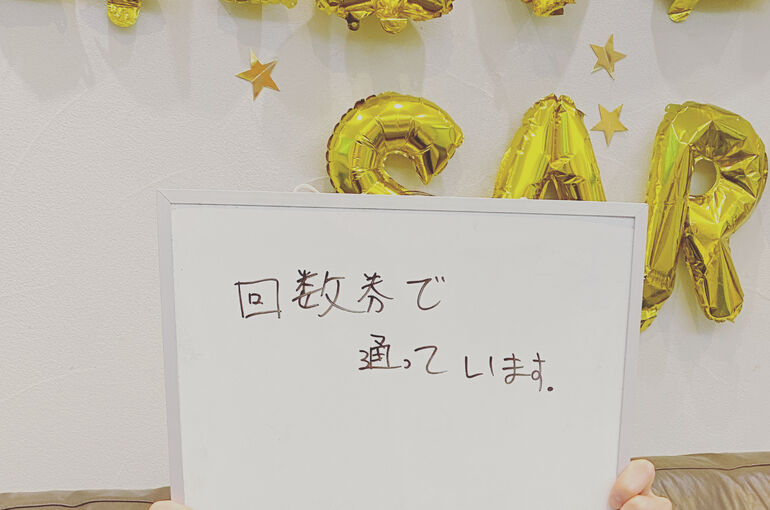 CAR
回数券で
通っています.